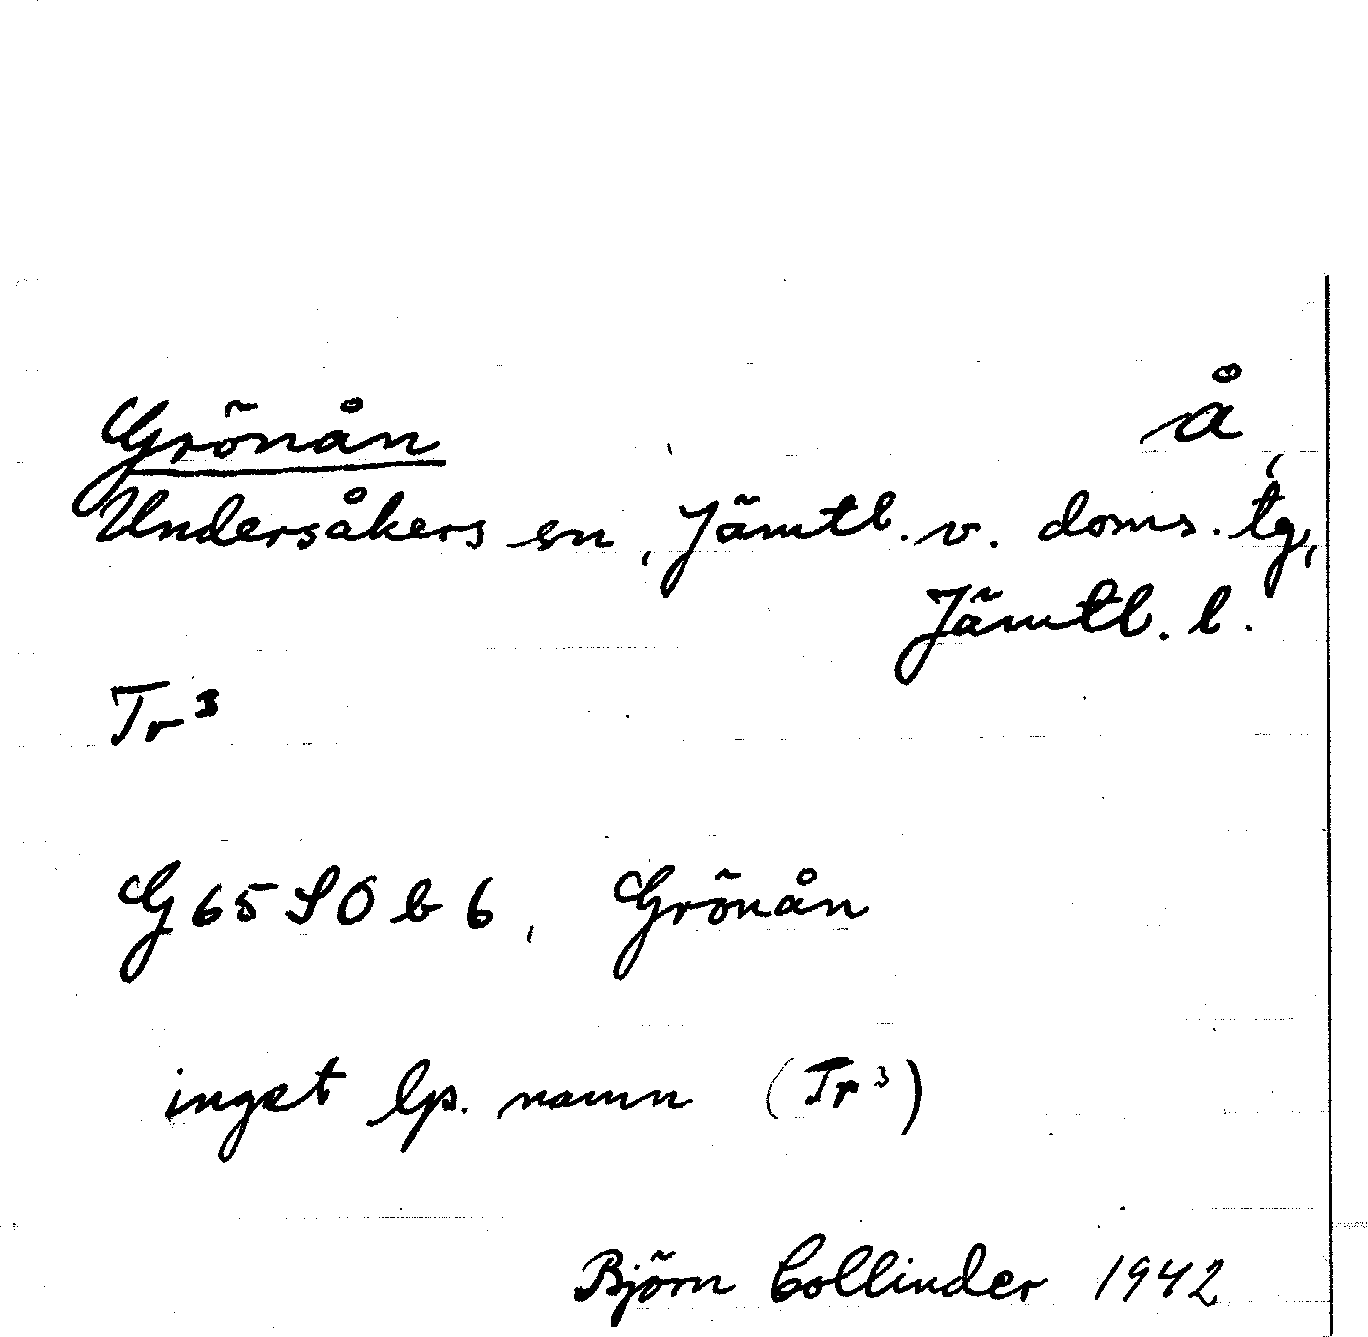 Grönån å
Undersåkers sn, Jämtl. v. doms. tg,
Jämtl. l.
Tr³
G 65 SO b 6, Grönån
inget lp. namn (Tr³)
Björn Collinder 1942